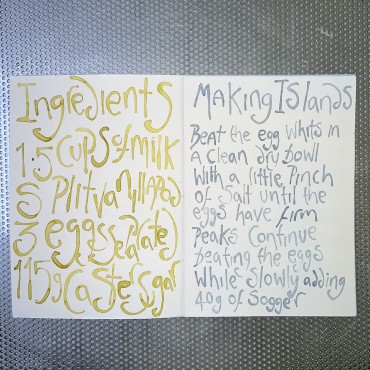 Ingredients
1.5 cups of milk
Split vanilla Pod
3 eggs seperated
115g Caster sugar
Making Islands
Beat the egg whits in
A clean dry bowl
With a little Pinch
of Salt until the
eggs have firm
Peaks Continue
beating the eggs
While Slowly adding
40g of Sogger